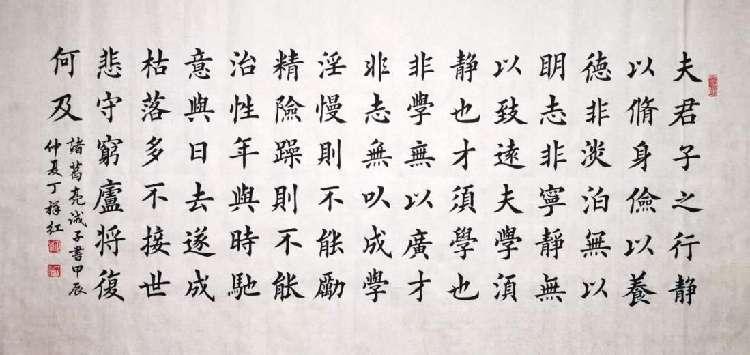 夫君子之行静
以脩身儉以養
德非淡泊無以
明志非寧静無
以致遠夫學須
静也才須學也
非學無以廣才
非志無以成學
淫慢則不能勵
精險躁則不能
治性年與時馳
意與日去遂成
枯落多不接世
悲守窮廬將復
何及
諸葛亮誡子書甲辰
仲夏丁祥红